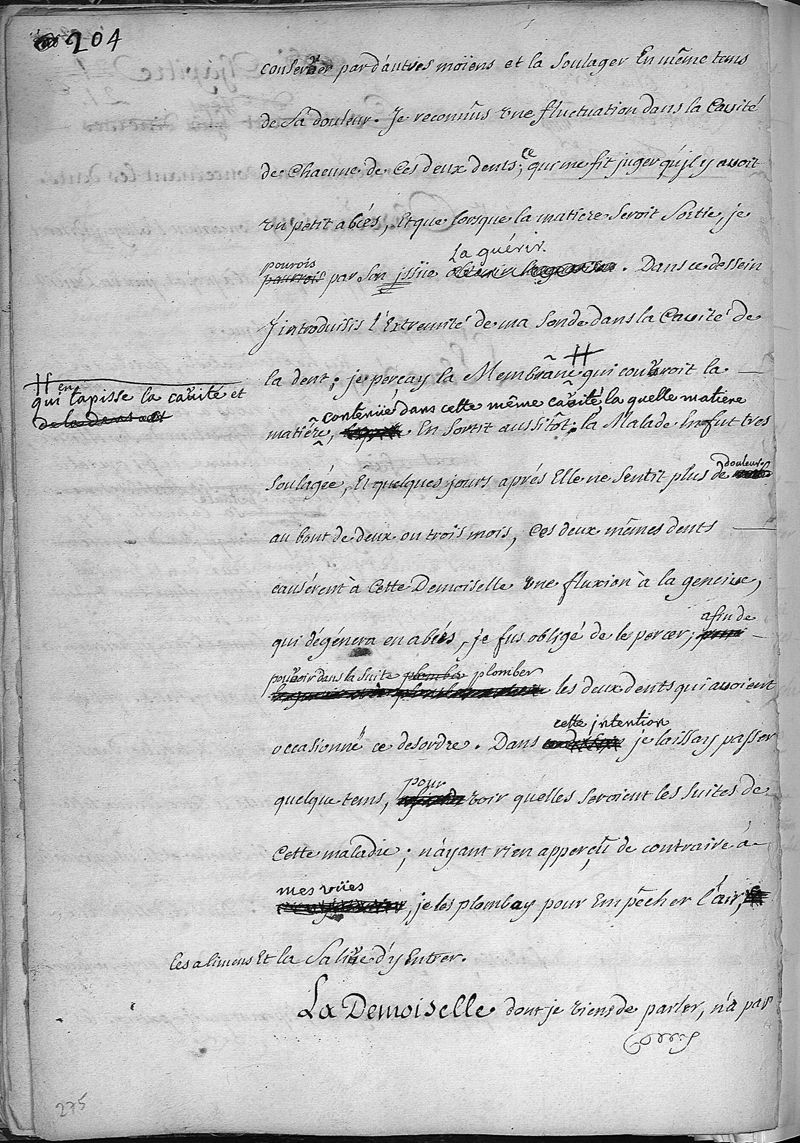 204
conserver par d'autres moïens et la soulager En même tems
de sa douleur. Je reconnûs une fluctuation dans la Cavité
de Chacune de Ces deux dents; ce qui me fit juger qu'jl y avoit
un petit abcés, Et que lorsque la matiere seroit Sortie, je
pourois
pourrois par Son jssüe la guérir. Dans ce dessein
J'introduisis l'Extremité de ma Sonde dans la Cavité de
la dent; je perçay la Membrane # qui couvroit la
# en
qui tapisse la cavité et
de la dens
contenüe dans cette même cavité, la quelle matiere
matiére, En Sortit aussitôt, la Malade En fut tres
soulagée, Et quelques jours aprés Elle ne Sentit plus de douleur
au bout de deux ou trois mois, Ces deux mêmes dents
causérent à Cette Demoiselle une fluxion à la gencive,
qui dégénera en abcés, je fus obligé de le percer, afin de
pouvoir dans la Suite plomber plomber
les deux dents qui avoient
occasionné ce desordre. Dans cette intention je laissay passer
quelque tems, pour voir quelles seroient les suites de
Cette maladie; n'ayant rien apperçû de contraire à
mes vües
, je les plombay pour Empêcher l'air,
les alimens Et la Salive d'y Entrer.
La Demoiselle dont je viens de parler, n'a pas
275